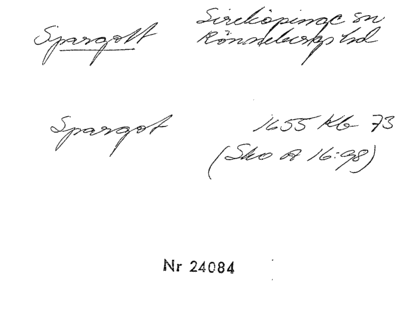 Spargott Sireköpinge sn
Rönnebergs hd
Spargot 1655 Kb 73
(Sko A 16:98)
Nr 24084